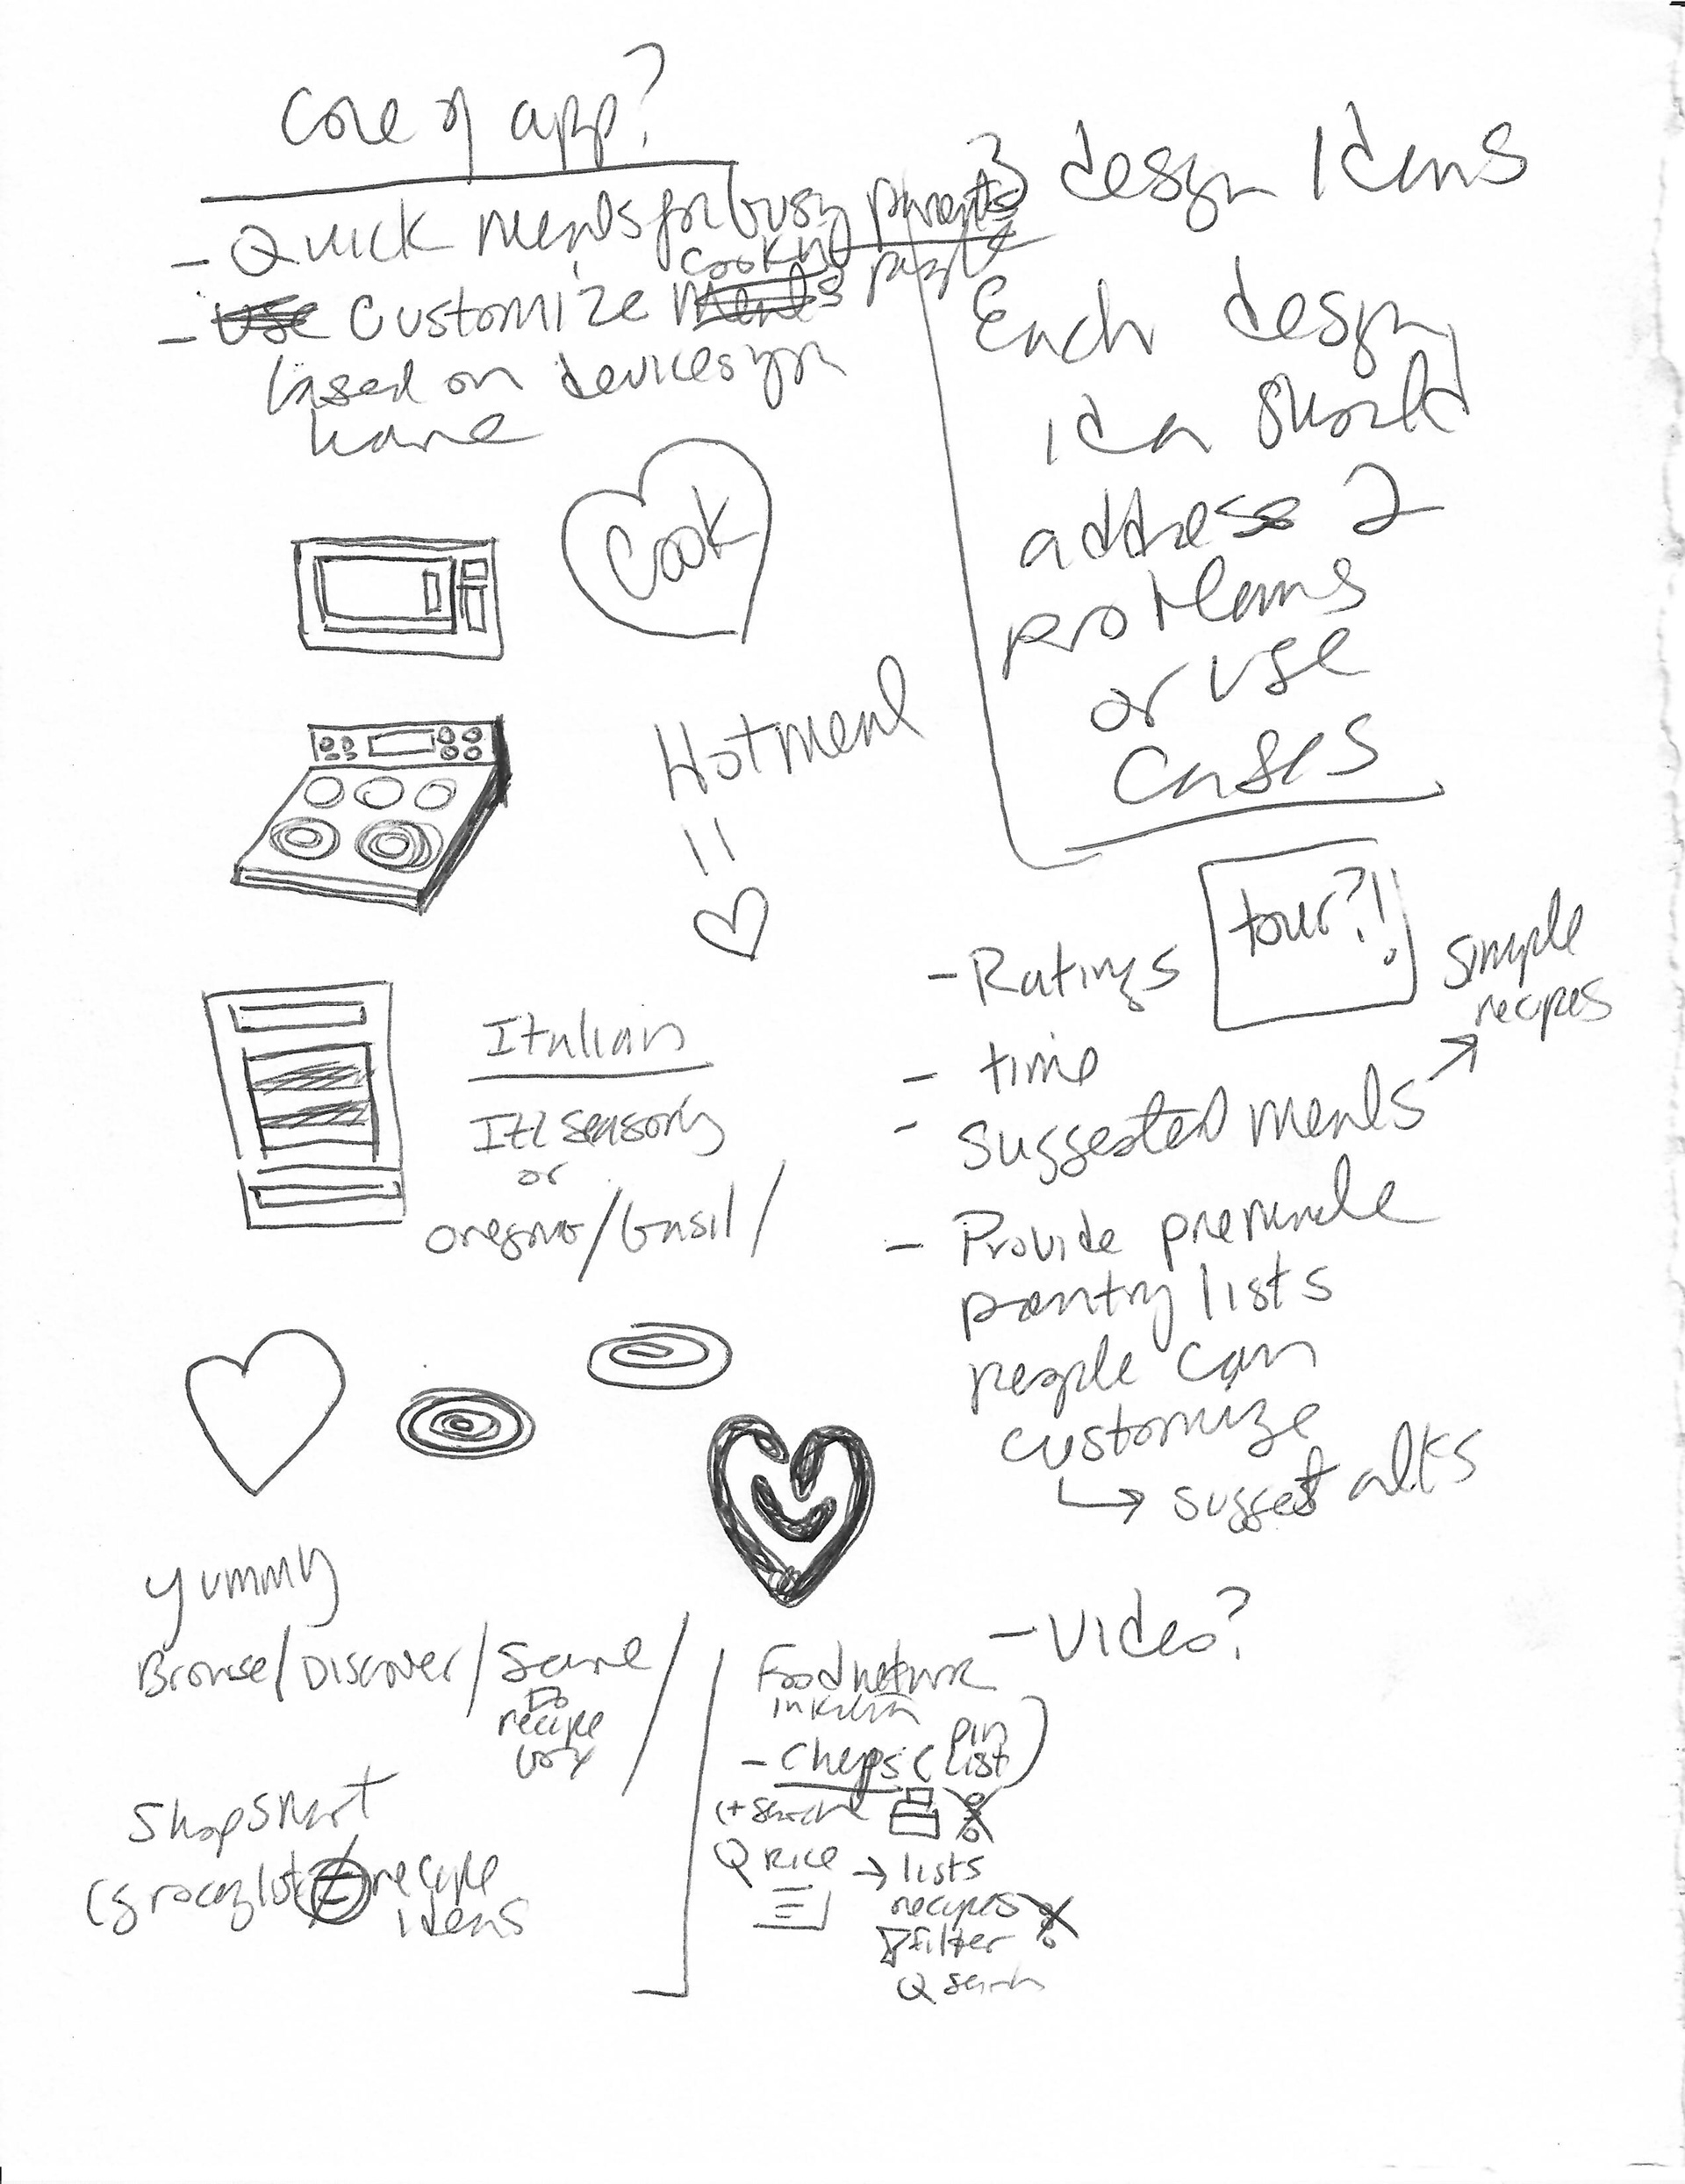 Core of app?
- Quick meals for busy parents
people
cooking
- Use Customize Meals
based on devices you
have
Cook
Hotmeal
=
Italian
Itl seasoning
or
oregano/basil/
yummy
Browse/Discover/Save/
recipe
box
Shopsmart
(grocery list recipe
ideas
3 design Ideas
Each design
idea should
address 2
problems
or use
cases
tour?!
- Ratings
- time
- suggested meals → simple
recipes
- Provide premade
pantry lists
people can
customize
→ suggest alts
- Video?
Food network
in kitchen
- Chefs (pin
list)
(+ search
Q Rice → lists
recipes
filter
Q search